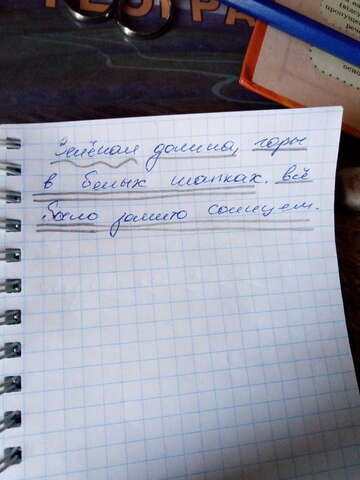 ГЕОГРА
Зелёная долина, горы
в белых шапках. всё
было залито солнцем.